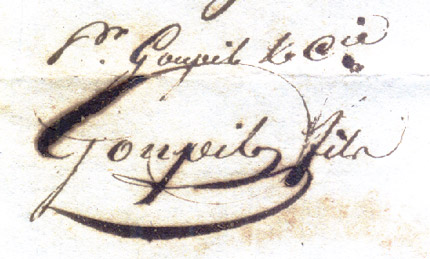 Pr. Goupil & Cie
Goupil fils